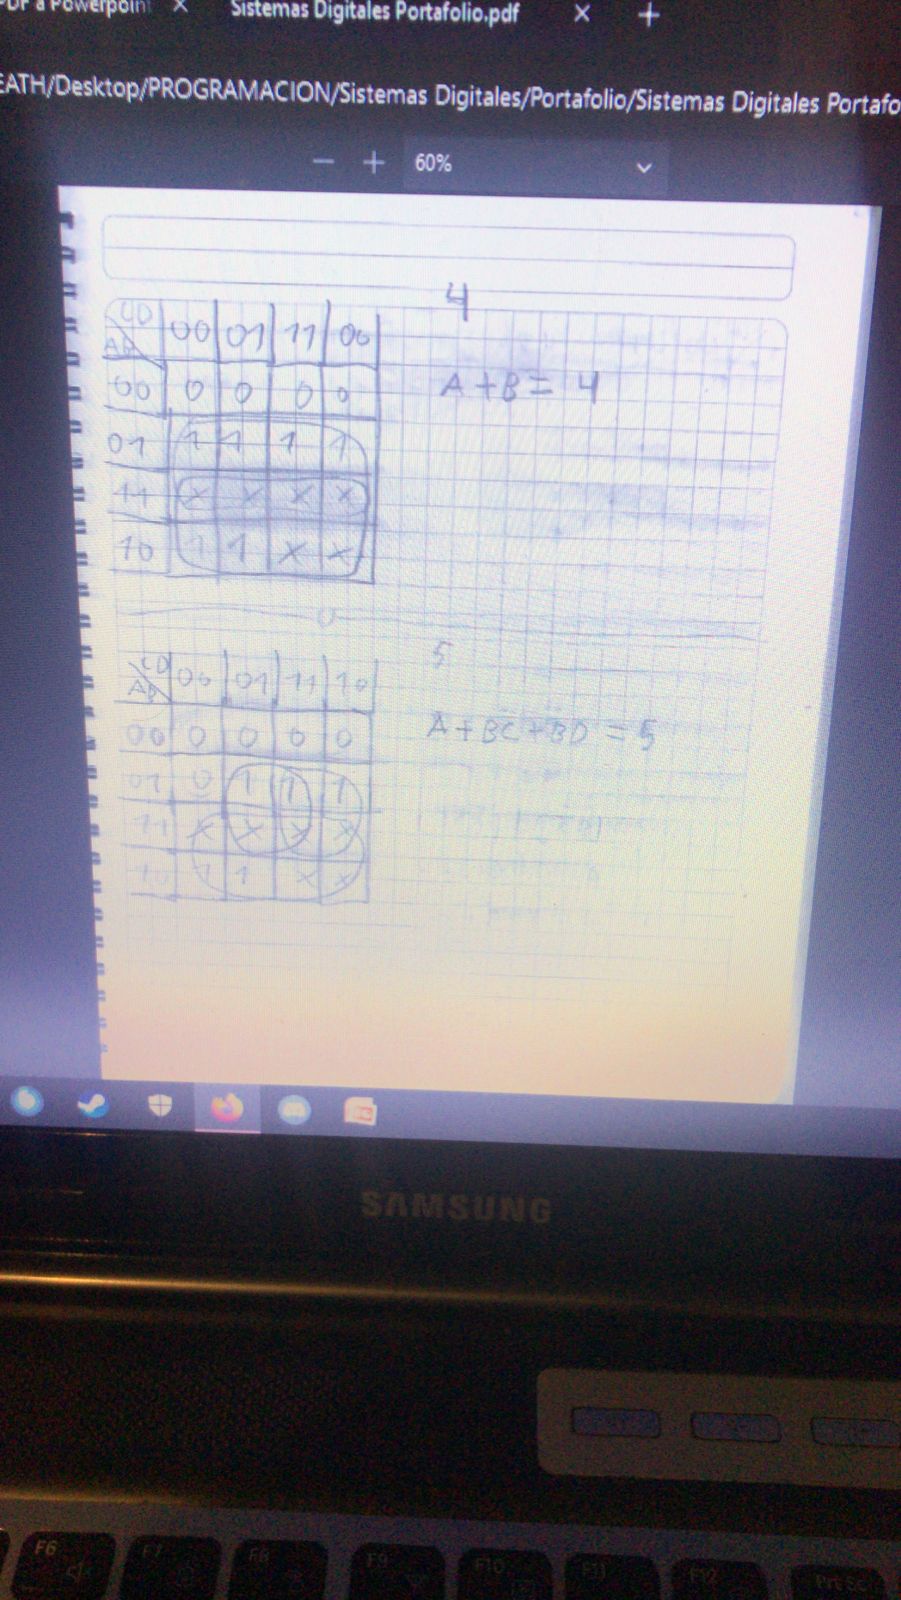 PDF a Powerpoin
Sistemas Digitales Portafolio.pdf
EATH/Desktop/PROGRAMACION/Sistemas Digitales/Portafolio/Sistemas Digitales Portafo
60%
4
CD 00 01 11 00
AB
00 0 0 0 0
A+B= 4
01 1 1 1 1
11 X X X X
10 1 1 X X
5
CD 00 01 11 10
AB
00 0 0 0 0
A+BC+BD = 5
01 0 1 1 1
11 X X X X
10 1 1 X X
SAMSUNG
F6 F7 F8 F9 F10 F11 F12 Prt Sc